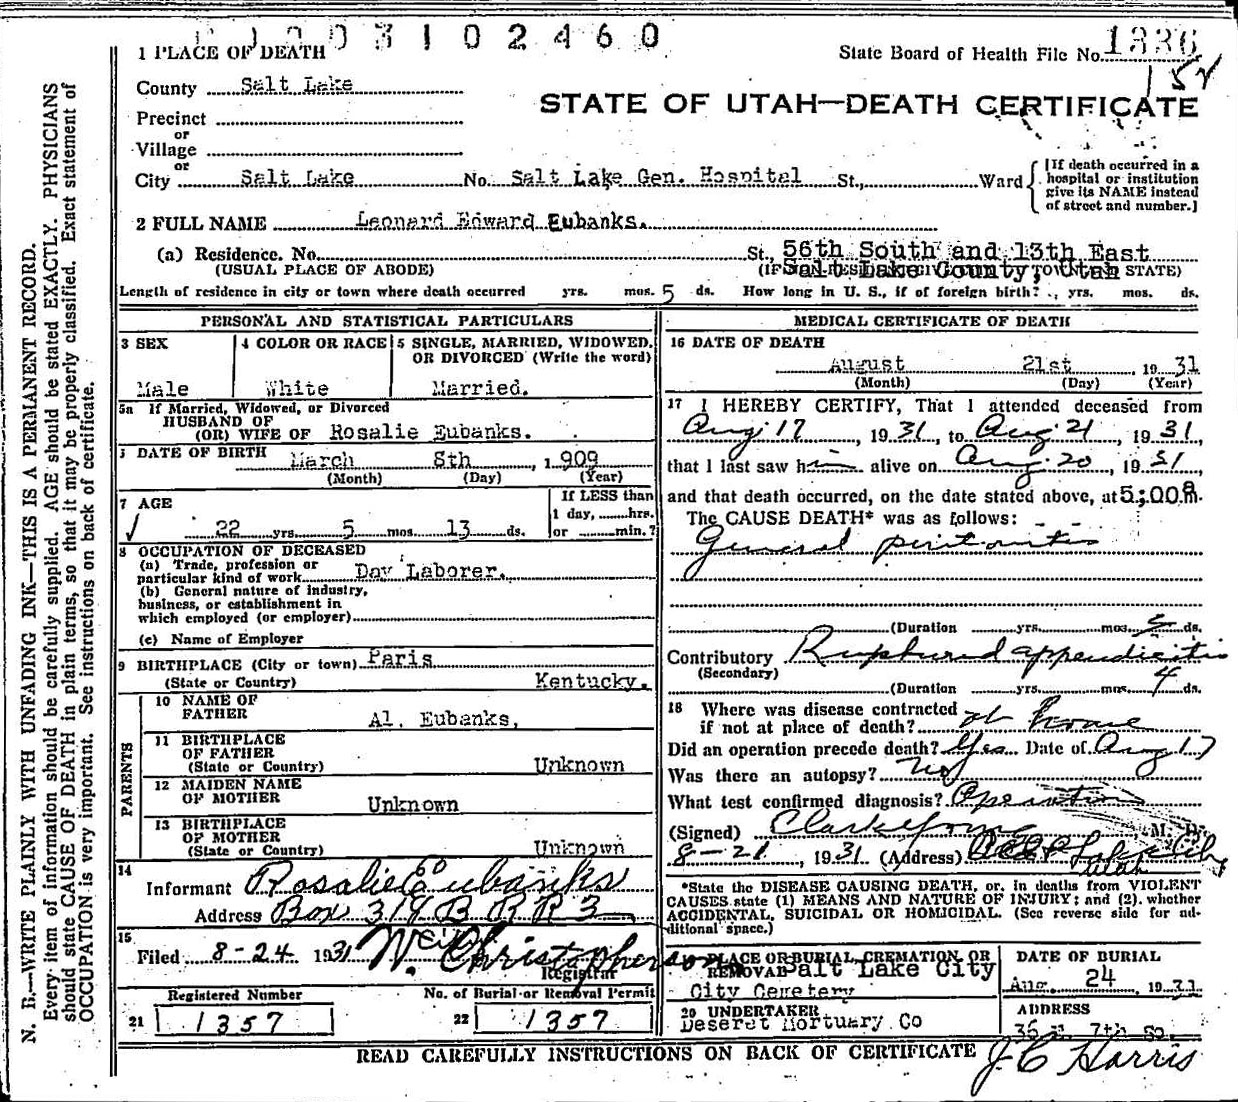 0 0 3 1 0 2 4 6 0
1 PLACE OF DEATH
State Board of Health File No. 1336
152
County Salt Lake
STATE OF UTAH—DEATH CERTIFICATE
Precinct
or
Village
or
City Salt Lake No. Salt Lake Gen. Hospital St., Ward
[If death occurred in a hospital or institution give its NAME instead of street and number.]
2 FULL NAME Leonard Edward Eubanks.
(a) Residence. No. St., 56th South and 13th East
(USUAL PLACE OF ABODE) Salt Lake County, Utah STATE)
Length of residence in city or town where death occurred yrs. mos. 5 ds. How long in U. S., if of foreign birth? yrs. mos. ds.
PERSONAL AND STATISTICAL PARTICULARS
3 SEX
Male
4 COLOR OR RACE
White
5 SINGLE, MARRIED, WIDOWED, OR DIVORCED (Write the word)
Married.
5a If Married, Widowed, or Divorced
HUSBAND OF
(OR) WIFE OF Rosalie Eubanks.
DATE OF BIRTH March 8th, 1909
(Month) (Day) (Year)
7 AGE
22 yrs. 5 mos. 13 ds.
If LESS than
1 day, hrs.
or min.?
8 OCCUPATION OF DECEASED
(a) Trade, profession or
particular kind of work Day Laborer.
(b) General nature of industry,
business, or establishment in
which employed (or employer)
(c) Name of Employer
9 BIRTHPLACE (City or town) Paris
(State or Country) Kentucky.
PARENTS
10 NAME OF
FATHER Al. Eubanks,
11 BIRTHPLACE
OF FATHER
(State or Country) Unknown
12 MAIDEN NAME
OF MOTHER Unknown
13 BIRTHPLACE
OF MOTHER
(State or Country) Unknown
14
Informant Rosalie Eubanks
Address Box 319 B R R 3
15
Filed 8-24 1931 W. Christopherson
Registrar
Registered Number
21 1357
No. of Burial or Removal Permit
22 1357
MEDICAL CERTIFICATE OF DEATH
16 DATE OF DEATH
August 21st 1931
(Month) (Day) (Year)
17 I HEREBY CERTIFY, That I attended deceased from
Aug 17, 1931, to Aug 21, 1931,
that I last saw him alive on Aug 20, 1931,
and that death occurred, on the date stated above, at 5:00 a m.
The CAUSE DEATH* was as follows:
General peritonitis
(Duration yrs. mos. 5 ds.
Contributory Ruptured appendicitis
(Secondary)
(Duration yrs. mos. 4 ds.
18 Where was disease contracted
if not at place of death? at home
Did an operation precede death? Yes Date of Aug 17
Was there an autopsy? No
What test confirmed diagnosis? Operation
(Signed) Clark Young M. D.
8-21, 1931 (Address) Salt Lake City
Utah
*State the DISEASE CAUSING DEATH, or, in deaths from VIOLENT
CAUSES state (1) MEANS AND NATURE OF INJURY; and (2). whether
ACCIDENTAL, SUICIDAL OR HOMICIDAL. (See reverse side for additional space.)
PLACE OR BURIAL, CREMATION, OR
REMOVAL Salt Lake City
City Cemetery
DATE OF BURIAL
Aug. 24 1931
20 UNDERTAKER
Deseret Mortuary Co
ADDRESS
36 E. 7th So.
READ CAREFULLY INSTRUCTIONS ON BACK OF CERTIFICATE
J C Harris
N. B.—WRITE PLAINLY WITH UNFADING INK—THIS IS A PERMANENT RECORD.
Every item of information should be carefully supplied. AGE should be stated EXACTLY. PHYSICIANS
should state CAUSE OF DEATH in plain terms, so that it may be properly classified. Exact statement of
OCCUPATION is very important. See instructions on back of certificate.